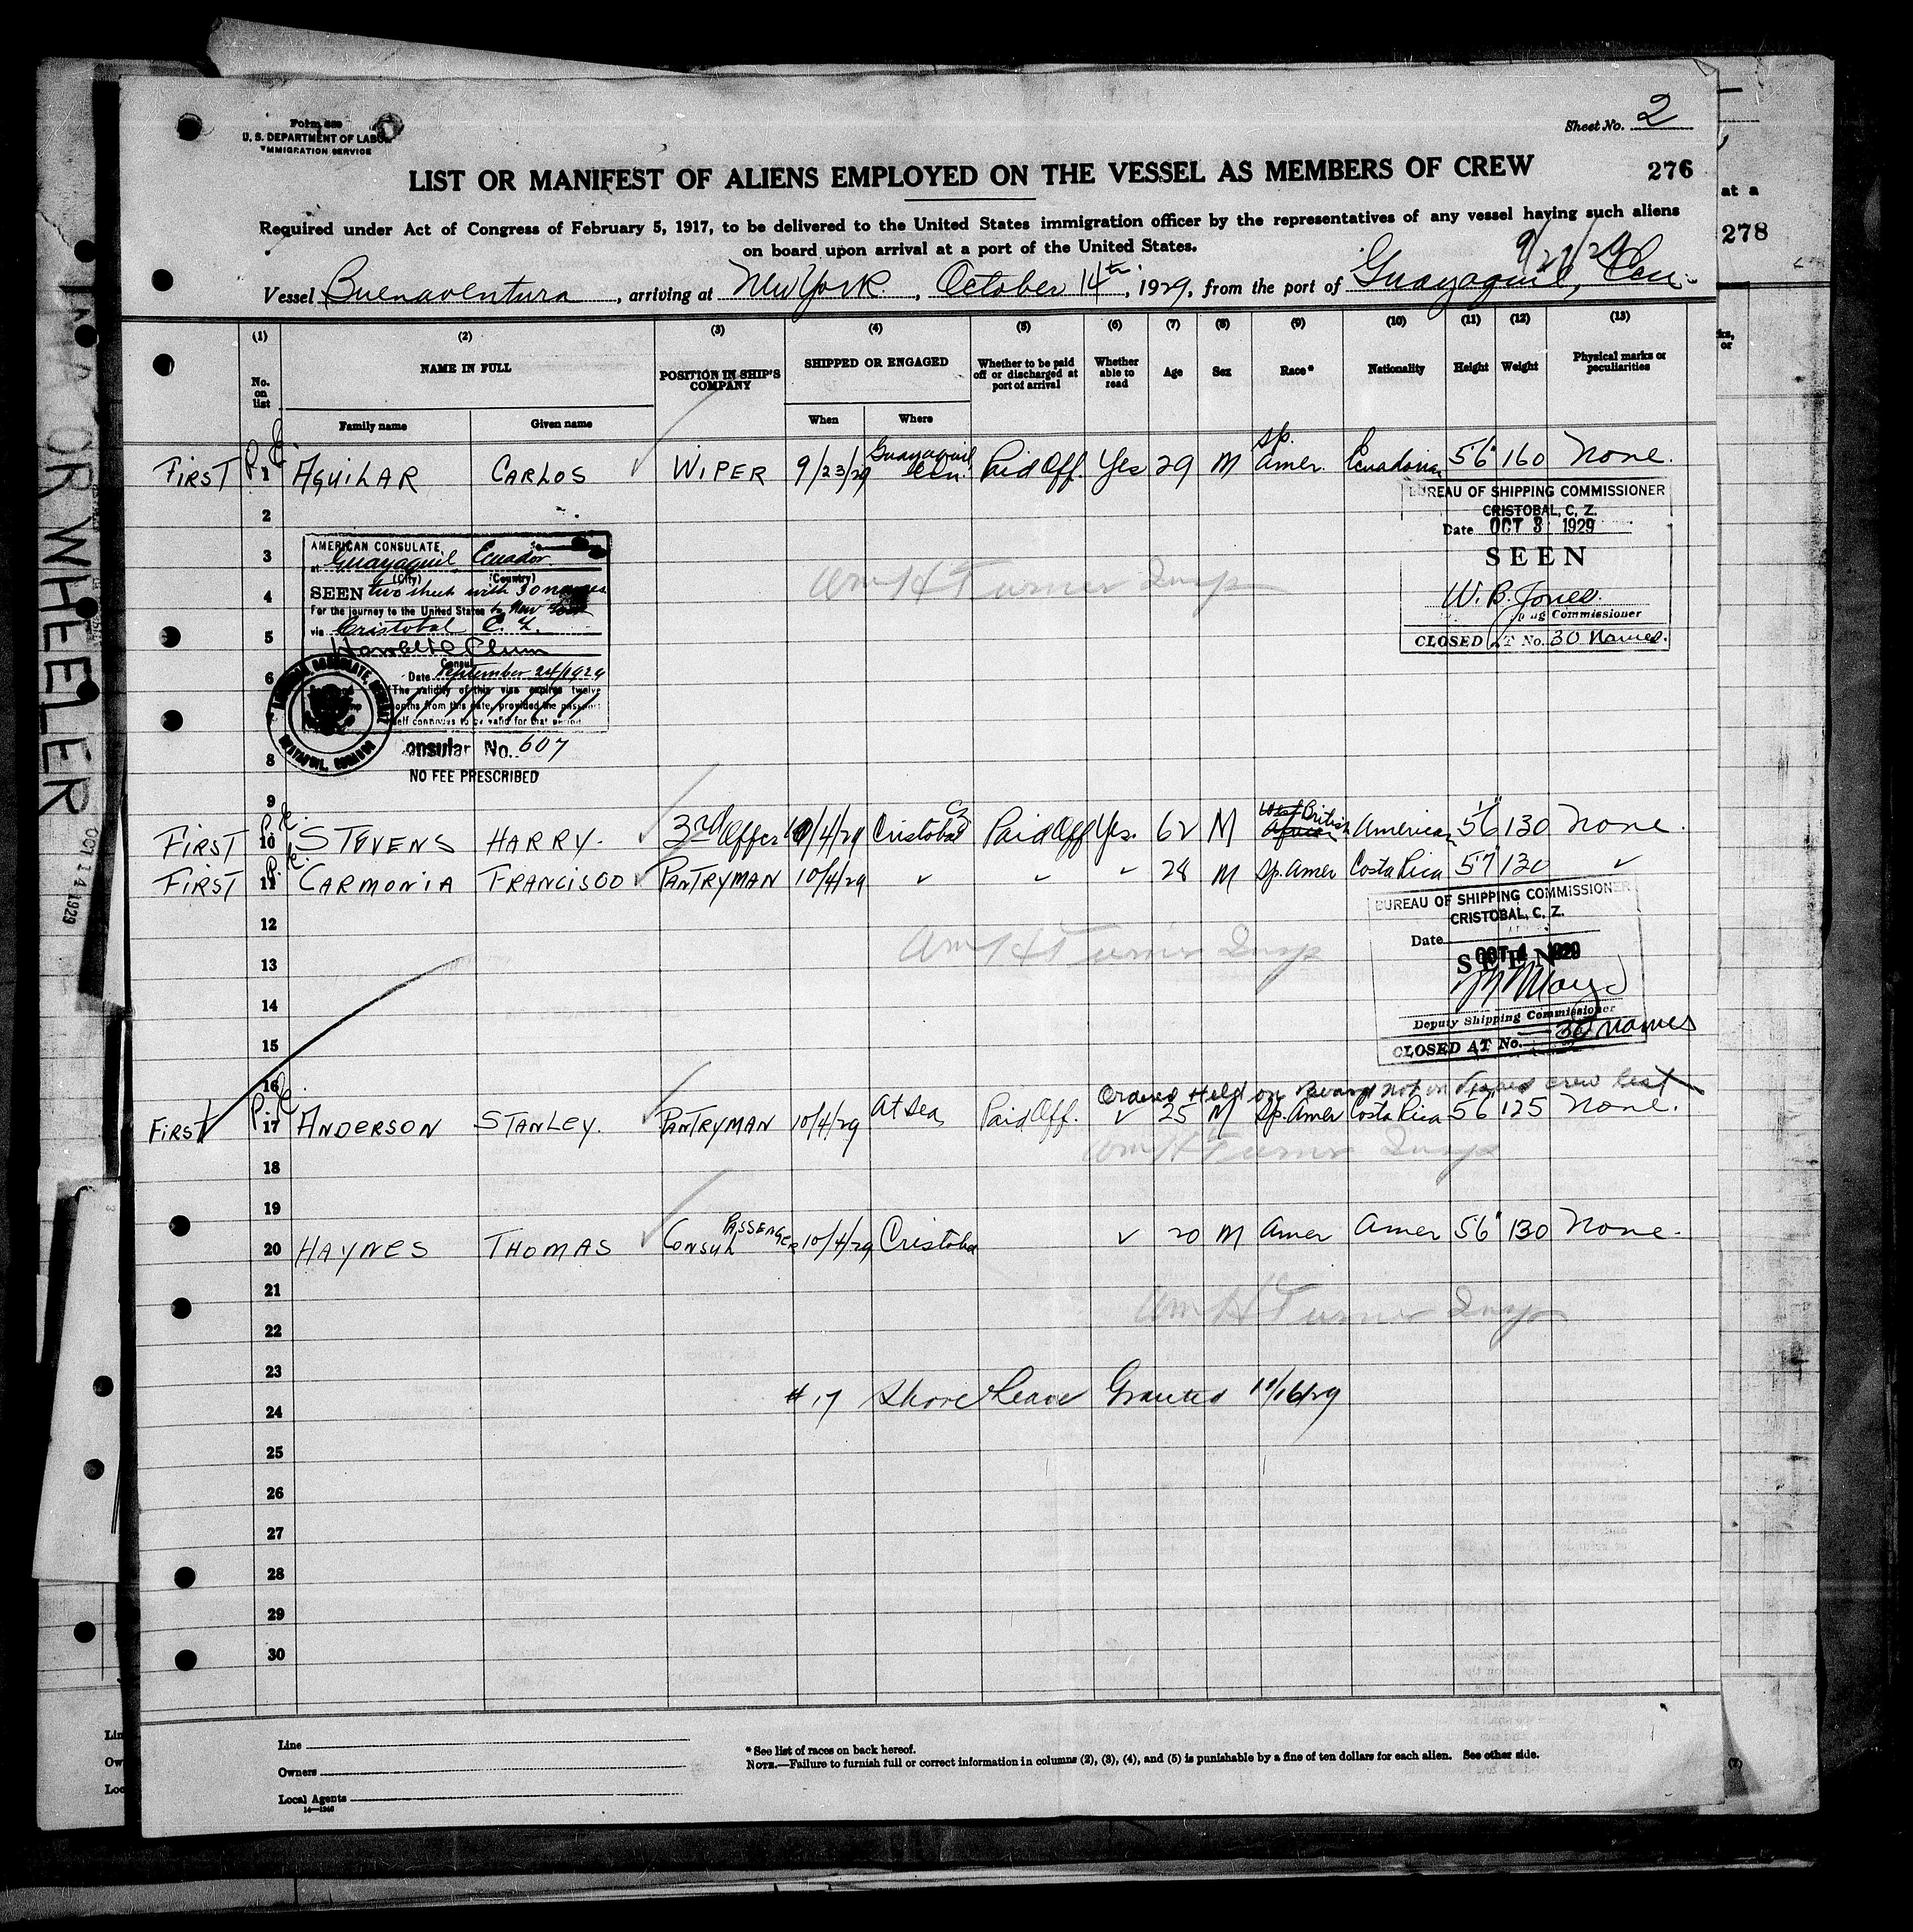 Form 689
U. S. DEPARTMENT OF LABOR
IMMIGRATION SERVICE
Sheet No. 2
LIST OR MANIFEST OF ALIENS EMPLOYED ON THE VESSEL AS MEMBERS OF CREW
276
Required under Act of Congress of February 5, 1917, to be delivered to the United States immigration officer by the representatives of any vessel having such aliens
on board upon arrival at a port of the United States.
Vessel Buenaventura, arriving at New York, October 14th, 1929, from the port of Guayaquil, Ecu.
(1) (2) (3) (4) (5) (6) (7) (8) (9) (10) (11) (12) (13)
No. on list
NAME IN FULL
Family name
Given name
POSITION IN SHIP'S COMPANY
SHIPPED OR ENGAGED
When
Where
Whether to be paid off or discharged at port of arrival
Whether able to read
Age
Sex
Race*
Nationality
Height
Weight
Physical marks or peculiarities
FIRST 1 AGUILAR CARLOS WIPER 9/23/29 Guayaquil Ecu. Paid Off. Yes 29 M Sp. Amer. Ecuadorian 5'6" 160 None.
2
BUREAU OF SHIPPING COMMISSIONER
CRISTOBAL, C. Z.
Date OCT 3 1929
SEEN
W. B. Jones.
Commissioner
CLOSED AT No. 30 Names.
3
AMERICAN CONSULATE,
at Guayaquil Ecuador
(City) (Country)
SEEN two sheets with 30 names
For the journey to the United States to New York
via Cristobal C. Z.
Consul
Date September 24/1929
The validity of this visa expires twelve
months from this date, provided the passport
itself continues to be valid for that period.
AMERICAN CONSULATE GENERAL
GUAYAQUIL, ECUADOR
Consular No. 607
NO FEE PRESCRIBED
Wm H Turner Insp
4
5
6
7
8
9
FIRST 10 STEVENS HARRY. 3rd Officer 10/4/29 Cristobal CZ Paid Off Yes. 62 M West African British American 5'6" 130 None.
FIRST 11 CARMONIA FRANCISCO PANTRYMAN 10/4/29 28 M Sp. Amer Costa Rica 5'7" 130
BUREAU OF SHIPPING COMMISSIONER
CRISTOBAL, C. Z.
Date OCT 4 1929
SEEN
Deputy Shipping Commissioner
CLOSED AT No. 30 names
12
Wm H Turner Insp
13
14
15
16
Ordered Held on Board not on visaed crew list
FIRST 17 ANDERSON STANLEY. PANTRYMAN 10/4/29 At Sea Paid Off. 25 M Sp. Amer Costa Rica 5'6" 125 None.
Wm H Turner Insp
18
19
20 HAYNES THOMAS CONSUL PASSENGER 10/4/29 Cristobal 20 M Amer Amer 5'6" 130 None.
21
Wm H Turner Insp
22
23
#17 Shore Leave Granted 11/16/29
24
25
26
27
28
29
30
Line
Owners
Local Agents
14—1240
* See list of races on back hereof.
NOTE.—Failure to furnish full or correct information in columns (2), (3), (4), and (5) is punishable by a fine of ten dollars for each alien. See other side.
OR WHEELER
OCT 14 1929
at a
278